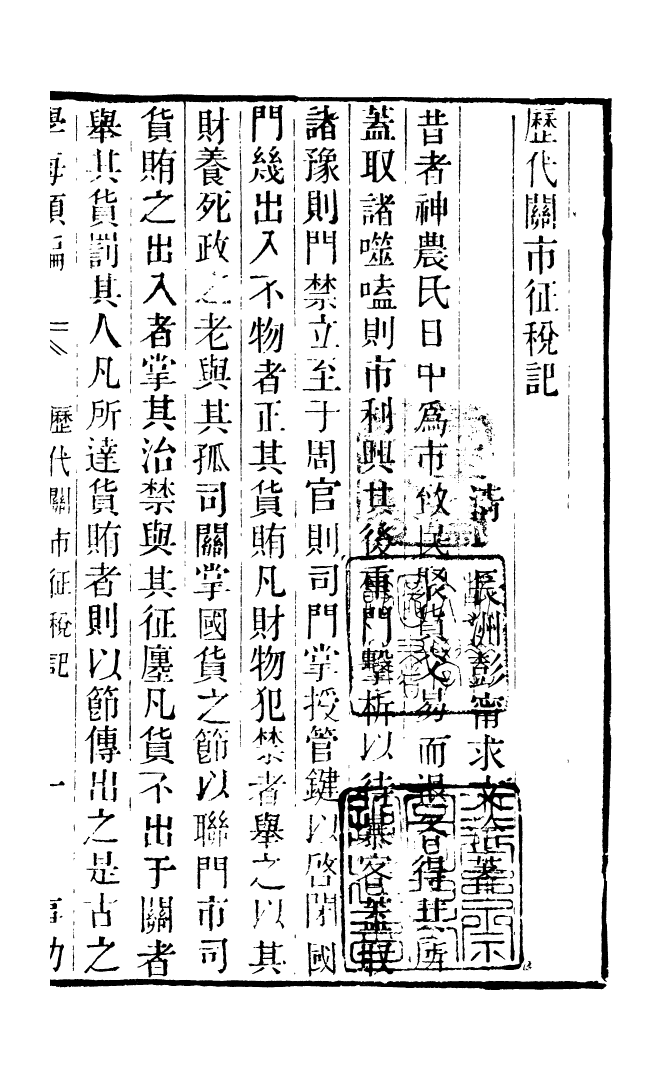 歷代關市征稅記
清 長洲彭甯求文洽纂
昔者神農氏日中爲市致民聚貨交易而退各得其所
蓋取諸噬嗑則市利興其後重門擊柝以待暴客蓋取
諸豫則門禁立至于周官則司門掌授管鍵以啓閉國
門幾出入不物者正其貨賄凡財物犯禁者舉之以其
財養死政之老與其孤司關掌國貨之節以聯門市司
貨賄之出入者掌其治禁與其征廛凡貨不出于關者
舉其貨罰其人凡所達貨賄者則以節傳出之是古之
學海類編 歷代關市征稅記 一